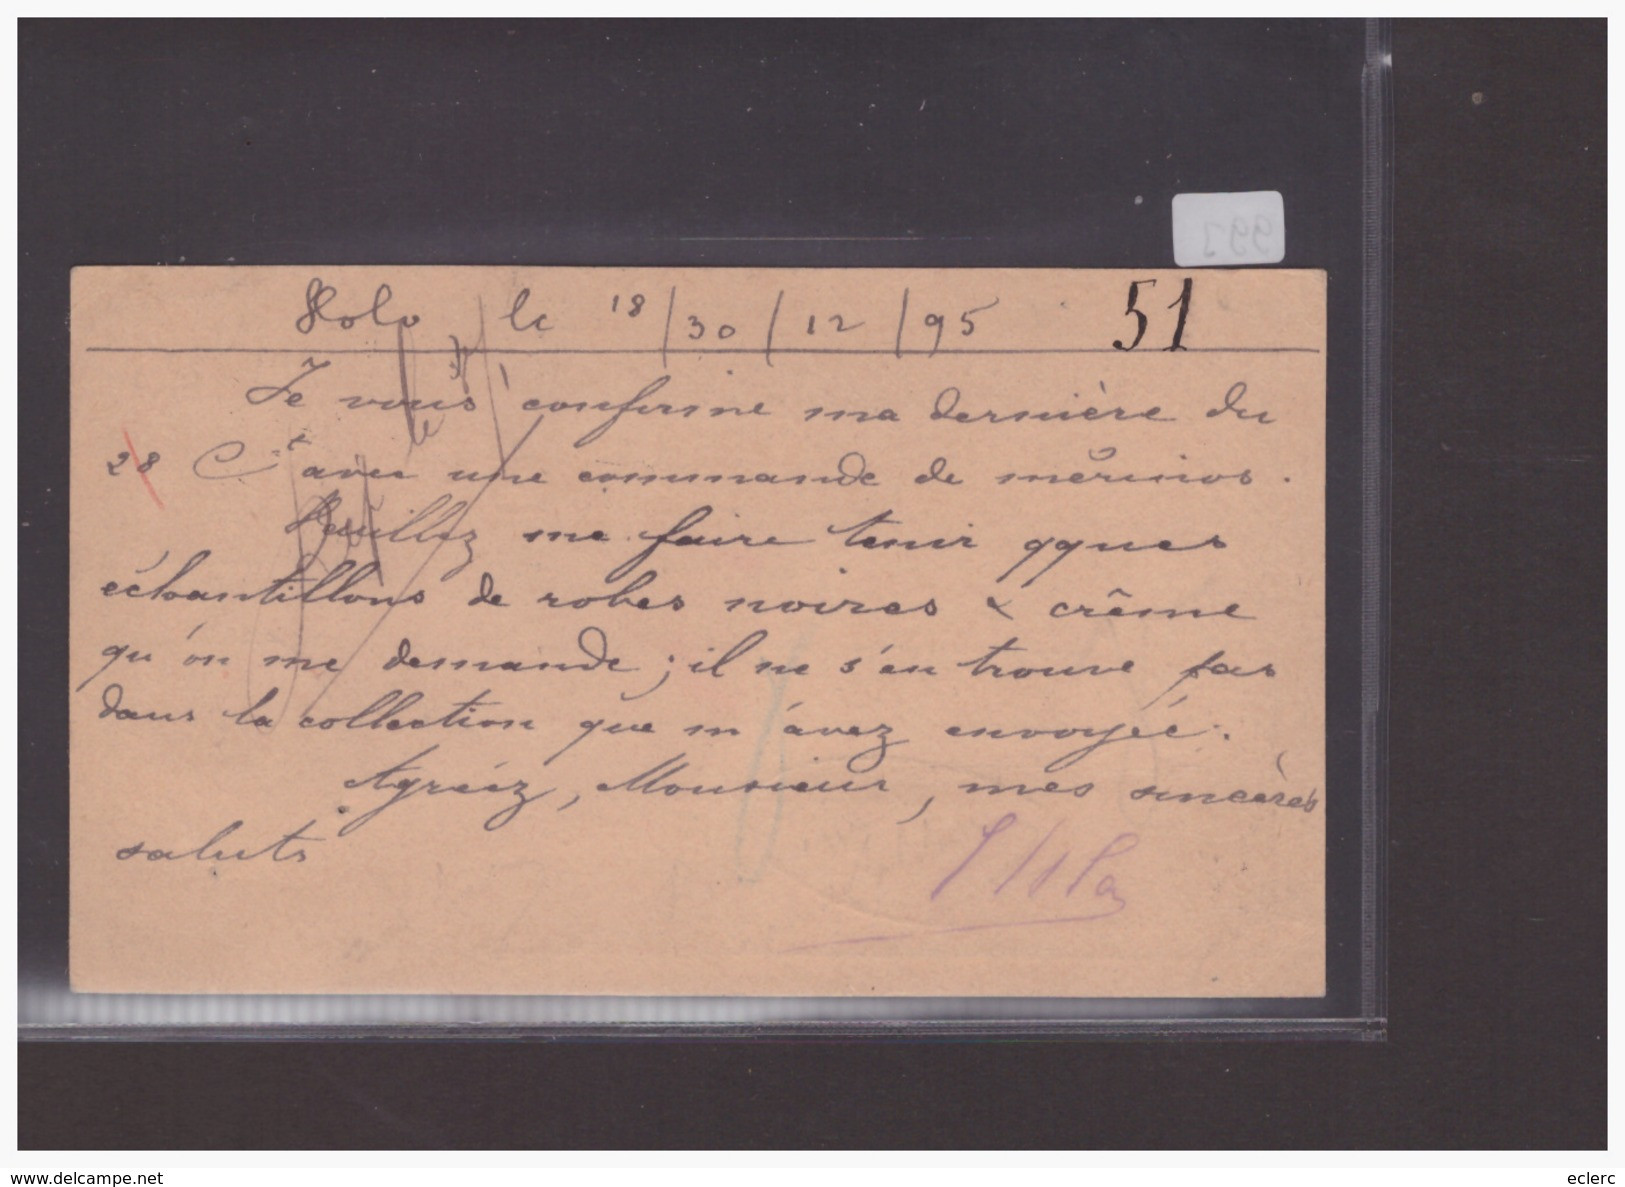 993
Volo, le 18/30/12/95 51
Je vous confirme ma dernière du
28 Ct avec une commande de mérinos.
Veuillez me faire tenir qques
échantillons de robes noires & crême
qu'on me demande; il ne s'en trouve pas
dans la collection que m'avez envoyée.
Agréez, Monsieur, mes sincères
saluts
www.delcampe.net
eclerc